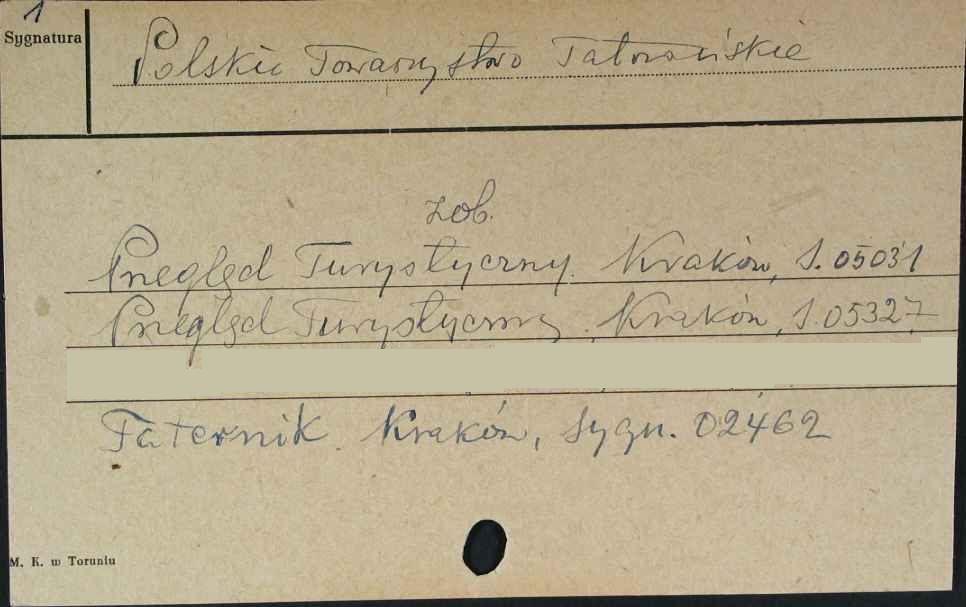 1
Sygnatura
Polskie Towarzystwo Tatrzańskie
zob.
Przegląd Turystyczny. Kraków, S. 05031
Przegląd Turystyczny. Kraków, S. 05327
Taternik. Kraków, sygn. 02462
M. K. w Toruniu